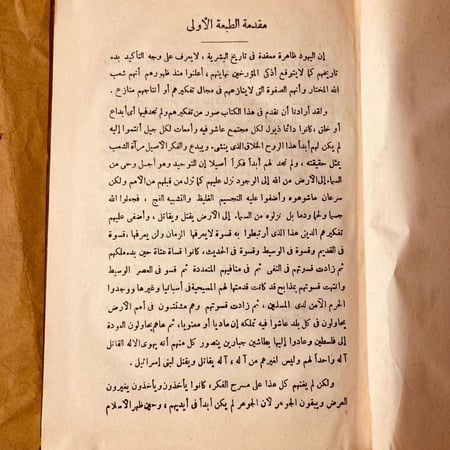 مقدمة الطبعة الأولى
إن اليهود ظاهرة معقدة فى تاريخ البشرية ، لايعرف على وجه التأكيد بدء
تاريخهم كما لايتوقع أذكى المؤرخين نهايتهم ، أعلنوا منذ ظهورهم أنهم شعب
الله المختار وأنهم الصفوة التى لا ينازعهم فى مجال تفكيرهم أو أنتاجهم منازع .
ولقد أرادنا أن نقدم فى هذا الكتاب صور من تفكيرهم ولم نجد فيها أى أبداع
أو خلق ، كانوا دائما ذيول لكل مجتمع عاشو فيه وأمعات لكل جيل أنتموا إليه
لم يكن لهم أبدأ هذا الروح الخلاق الذى ينشىء ويبدع والفكر الأصيل مرآة الشعب
يمثل حقيقته ، ولم نجد لهم أبدأ فكراً أصيلا إن التوحيد وهو أجل وحى من
السماء إلى الأرض من الله إلى الوجود نزل عليهم كما نزل من قبلهم من الأمم ولكن
سرعان ماشوهوه وأضفوا عليه التجسيم الغليظ والتشبيه الفج ، فجعلوا الله
جسما ولحما ودما بل نزلوه من السماء إلى الأرض يقتل ويقاتل ، وأضفى عليهم
تفكيرهم الدينى هذا الذى أرتبطوا به قسوة لايعرفها الزمان ولن يعرفها ، قسوة
فى القديم وقسوة فى الوسيط وقسوة فى الحديث ، كانوا قساة عتاة حين ملكهم
ثم زادت قسوتهم فى النفى ثم فى منافيهم المتعددة ثم فى العصر الوسيط
وانتهت قسوتهم بمذابح قد كانت قدمتها لهم المسيحية فى أسبانيا وغيرها ووجدوا
الحرم الآمن لدى المسلمين ، ثم زادت قسوتهم وهم مشتتون فى أمم الأرض
يحاولون فى كل بلد عاشوا فيه تملكه إن ماديا أو معنويا ، ثم هاهم يحاولون العودة
إلى فلسطين وعادوا إليها بطاشين جبارين يتصور كل منهم أنه يهوى الاله القاتل
آله واحداً لهم وليس لغيرهم من آله ، آله يقاتل ويقتل لبنى إسرائيل .
ولكن لم يفتهم كل هذا على مسرح الفكر ، كانوا يأخذون ويأخذون يغيرون
العرض ويبقون الجوهر لأن الجوهر لم يكن أبدأ فى أيديهم ، وحين ظهر الاسلام